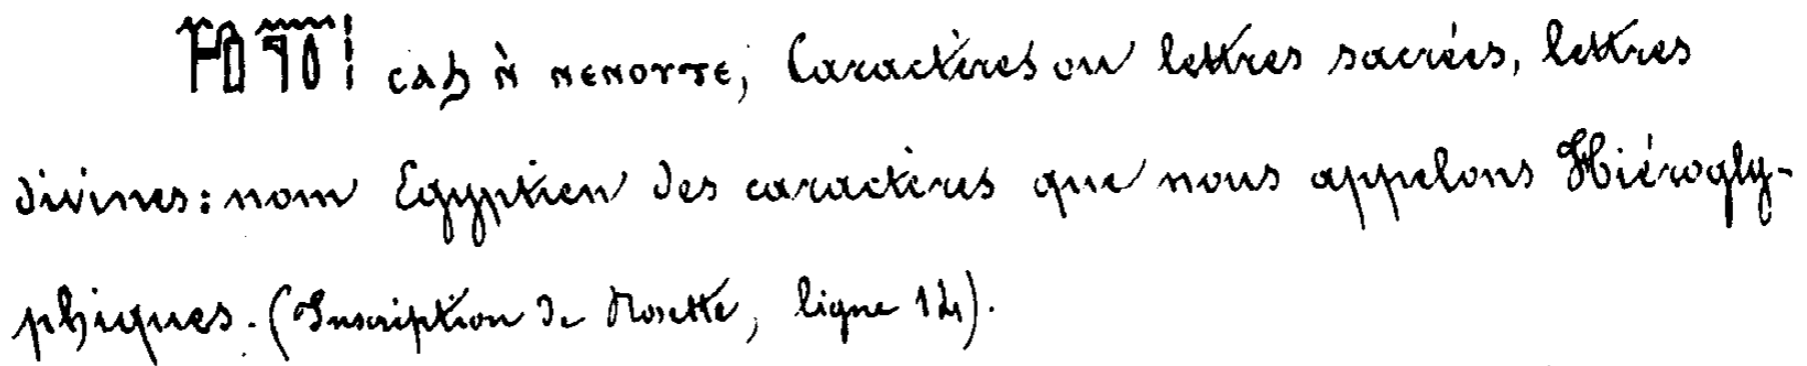 ⲥⲁϩ ⲛ̀ ⲛⲉⲛⲟⲩⲧⲉ, Caractères ou lettres sacrées, lettres
divines: nom Egyptien des caractères que nous appelons Hiérogly-
phiques. (Inscription de Rosette, ligne 14).